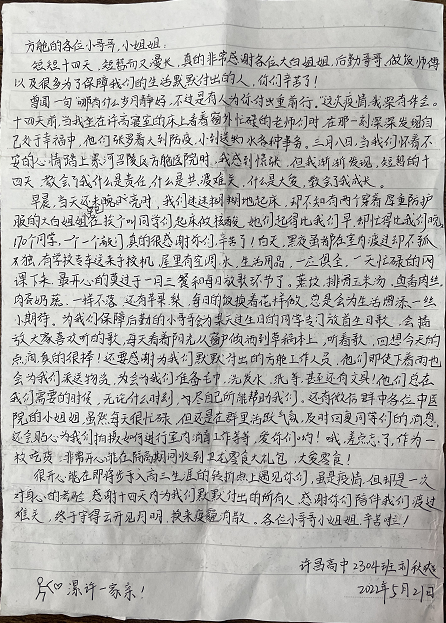 方舱的各位小哥哥,小姐姐:
短短十四天,短暂而又漫长,真的非常感谢各位大白姐姐,后勤哥哥,做饭师傅
以及很多为了保障我们的生活默默付出的人,你们辛苦了!
曾闻一句"哪有什么岁月静好,不过是有人为你付出负重前行。"这次疫情,我深有体会。
十四天前,当我坐在许高寝室的床上看着窗外忙碌的老师们时,在那一刻深深发现自
己处于幸福中,他们张罗着大到防疫,小到送的水各种事务。三月八日,当我们怀着不
安的心情踏上漯河召陵区方舱医院时,我感到惊讶,但我渐渐发现,短暂的十
四天,教会了我什么是责任,什么是共渡难关,什么是大爱,教会了我成长。
早晨,当天还未晓时,我们迷迷糊糊地起床,却不知有两个穿着厚重防护
服的大白姐姐在挨个叫同学们起床做核酸,她们起得比我们早,却忙得比我们晚,
170个同学,一个一个敲门,真的很感谢你们,辛苦了!白天,黑夜虽都在室内渡过却不孤
不独,有学校专车送来手机,屋里有空调,水,生活用品,一应俱全,一天忙碌的网
课下来,最开心的莫过于一日三餐和每日放歌环节了。
内,一样不落,还有苹果梨,每日的饭换着花样做,总是会为生活增添一丝
小期待。为我们保障后勤的小哥哥会为某天过生日的同学专门放首生日歌,会播
放大家喜欢听的歌,每天看着阳光从窗户的洒到草稿本上,听着歌,回想今天的
点滴真的很棒!还要感谢为我们默默付出的方舱工作人员,他们即使下着雨也
会为我们采送物资,为会为我们准备毛巾,洗发水,纸等,甚至还有文具!他们总在
我们需要的时候,无论什么时刻,内尽自己所能帮助我们,还有微信群中各位中医
院的小姐姐,虽然每天很忙碌,但还是在群里活跃气氛,及时回复同学们的消息,
还会贴心为我们拍摄如何进行室内消毒工作等等,爱你们哟!哦,差点忘了,作为一
枚吃货,非常开心能在隔离期间收到卫龙零食大礼包,大爱零食!
很开心能在即将步入高三生涯的转折点上遇见你们,虽是疫情,但却是一次
对身心的去,感谢十四天内为我们默默付出的所有人,感谢你们陪伴我们渡过
难关,终于守得云开见月明,换来疫霾消散。各位小哥哥小姐姐,辛苦啦!
许昌高中2304班刘秋
2022年5月21日
漯许一家亲!